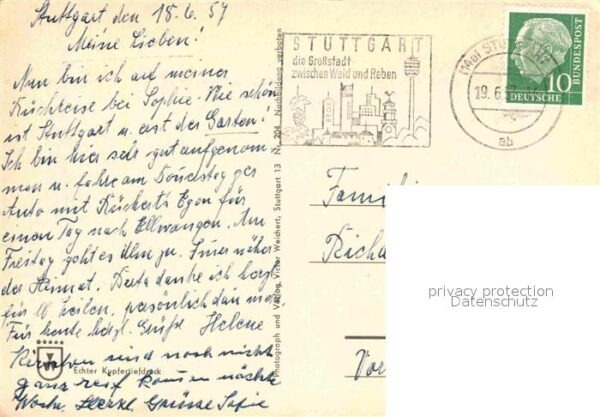 Stuttgart den 18.6.57
Meine Lieben!
Nun bin ich auf meiner
Rückreise bei Sophie. Wie schön
ist Stuttgart u. erst der Garten.
Ich bin hier sehr gut aufgenom
men u. fahre am Donnerstag per
Auto mit Egon für
einen Tag nach Ellwangen. Am
Freitag geht es Ulm zu. Immer näher
der Heimat. Berta danke ich herzl
für lb Zeilen, persönlich dann mehr
Für heute herzl. Grüße Helene
Kirschen sind noch nicht
ganz reif kommen nächste
Woche. Herzl. Grüsse Sofie
Echter Kupfertiefdruck
Photograph und Verlag Victor Weichert, Stuttgart 13 Nr. 204 Nachbildung verboten
STUTTGART
die Großstadt
zwischen Wald und Reben
(14a) STUTTGART
19.6.57
ab
10
DEUTSCHE
BUNDESPOST
Familie
Richa
Vor
privacy protection
Datenschutz